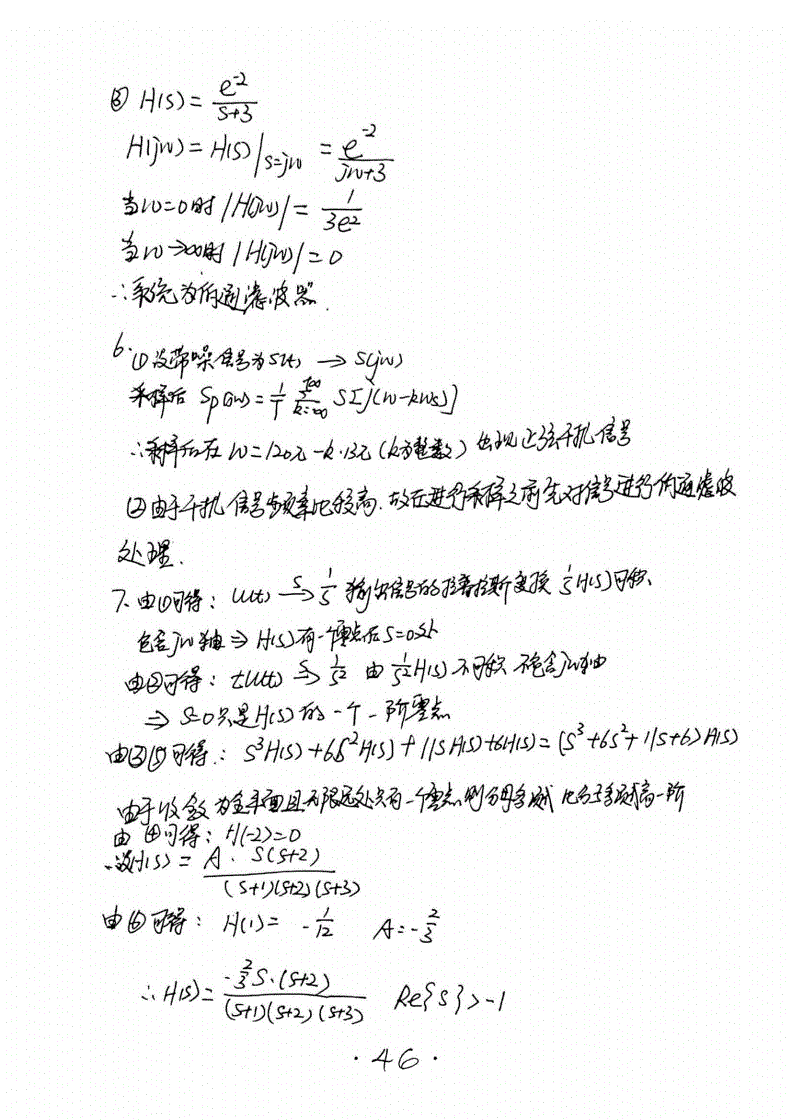 ③ H(s) = e^-2 / (s+3)
H(jw) = H(s)|s=jw = e^-2 / (jw+3)
当w=0时 |H(jw)| = 1/(3e^2)
当w→∞时 |H(jw)| = 0
∴系统为低通滤波器.
6. ①设带噪信号为S(t) → S(jw)
采样后 Sp(jw) = 1/T Σ(k=-∞ → +∞) S[j(w-kws)]
∴采样后在 w=120π-k·13π (k为整数) 出现正弦干扰信号
②由于干扰信号频率比较高, 故在进行采样之前先对信号进行低通滤波
处理.
7. 由①可得: u(t) —S→ 1/s 输出信号的拉普拉斯变换 1/s H(s)可积,
包含jw轴 ⇒ H(s)有一个零点在S=0处
由②可得: tu(t) —S→ 1/s^2 由 1/s^2 H(s) 不可积 不包含jw轴
⇒ S=0只是H(s)的一个一阶零点
由③⑤可得: s^3H(s)+6s^2H(s)+11sH(s)+6H(s) = (s^3+6s^2+11s+6)H(s)
由于收敛为全平面且无限远处只有一个零点,则分母多项式比分子多项式高一阶
由④可得: H(-2)=0
∴设H(s) = A·s(s+2) / (s+1)(s+2)(s+3)
由⑥可得: H(1) = -1/12 A=-2/3
∴H(s) = -2/3 s·(s+2) / (s+1)(s+2)(s+3) Re{s}>-1
·46·